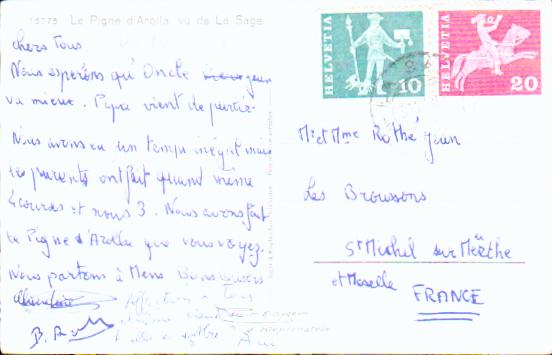 15775 Le Pigne d'Arolla vu de La Sage
chers tous
Nous espérons qu'Oncle Jean
va mieux. Pipa vient de partir.
Nous avons eu un temps inégal mais
les parents ont fait quand même
4 courses et nous 3. Nous avons fait
le Pigne d'Arolla que vous voyez.
Nous partons à Mens Bons baisers
Affection à tous
HELVETIA 10
HELVETIA 20
M et Mme Rothé Jean
Les Browsons
St Michel sur Meurthe
et Moselle
FRANCE